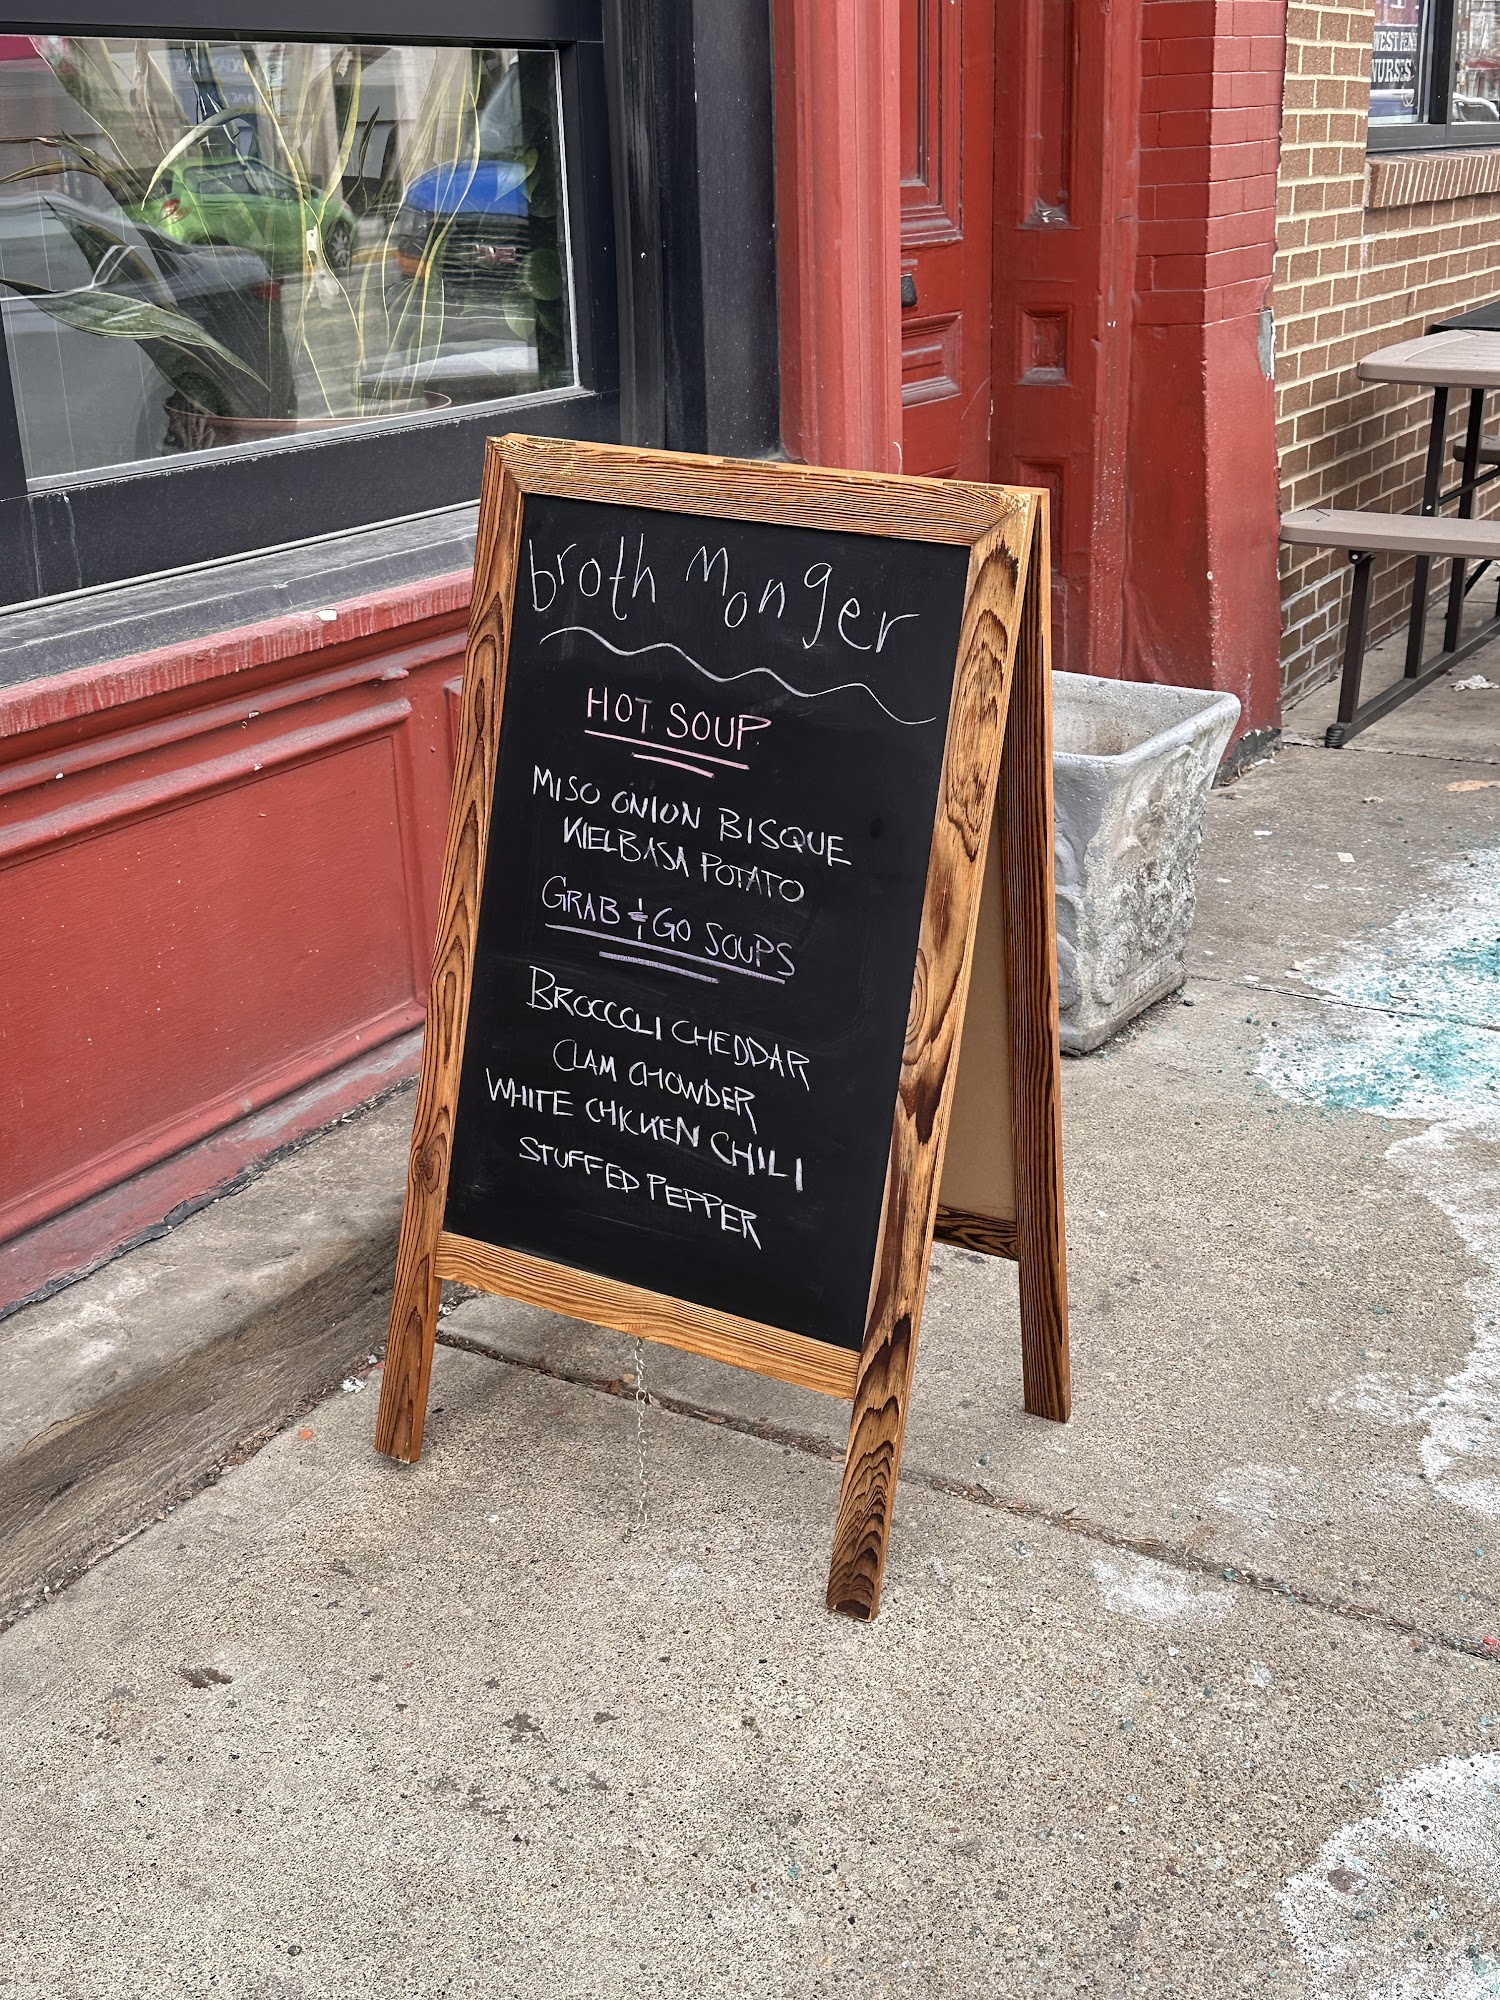 broth Monger
HOT SOUP
MISO ONION BISQUE
KIELBASA POTATO
GRAB & GO SOUPS
BROCCOLI CHEDDAR
CLAM CHOWDER
WHITE CHICKEN CHILI
STUFFED PEPPER
WEST PEN
NURSES